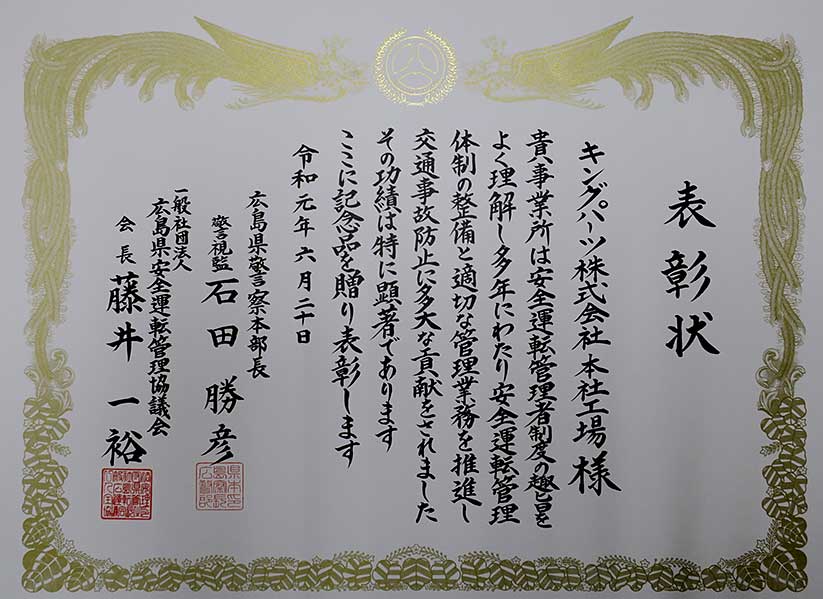 表彰状
キングパーツ株式会社 本社工場 様
貴事業所は安全運転管理者制度の趣旨を
よく理解し多年にわたり安全運転管理
体制の整備と適切な管理業務を推進し
交通事故防止に多大な貢献をされました
その功績は特に顕著であります
ここに記念品を贈り表彰します
令和元年六月二十日
広島県警察本部長
警視監 石田勝彦
一般社団法人
広島県安全運転管理協議会
会長 藤井一裕